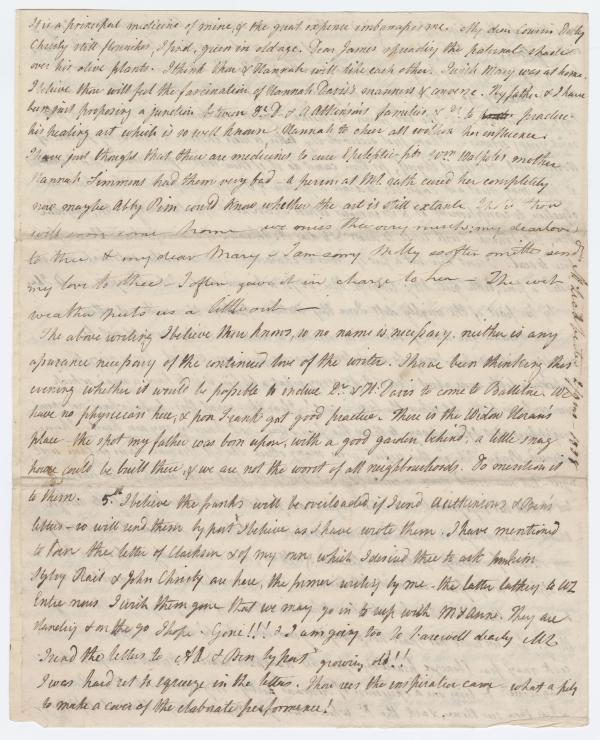 It is a principal medicine of mine, & the great expence embarrasses me. My dear Cousin Dolly
Christy still flourishes, I find, green in old age. Dear James spreading the paternal shade
over his olive plants. I think thou & Hannah will like each other. I wish Mary was at home.
I believe thou wilt feel the fascination of Hannah Davis's manners & converse. Thy father & I have
been just proposing a junction between Dr D & A Atkinson's families & Dr to practice
his healing art which is so well known Hannah to cheer all within her influence.
I have just thought that there are medicines to cure Epileptic fits Wm Walpole's mother
Hannah Simmons had them very bad - a person at cured her completely
now maybe Abby Pim could know whether the art is still extant thou
wilt soon come home - we miss thee very much; my dear love
to thee & my dear Mary - I am sorry Molly so often omitts send
my love to thee - I often gave it in charge to her - The wet
weather puts us a little out -
The above writing I believe thou knows, so no name is necessary. neither is any
assurance necessary of the continued love of the writer. I have been thinking this
evening whether it would be possible to induce Dr & H: Davis to come to Ballitore. We
have no physician here, & poor Frank got good practice. There is the Widow Horan's
place - the spot my father was born upon, with a good garden behind; a little snug
house could be built there, & we are not the worst of all neighbourhoods. Do mention it
to them. 5th I believe the franks will be overloaded if I send A Atkinson's & Ben's
letters - so will send them by post I believe as I have wrote them. I have mentioned
to Ben the letter of Clarkson & of my own which I desired thee to ask him
Sylvy Rait & John Christy are here, the former writing by me - the latter talking to WL
Entre nous I wish them gone that we may go in to sup with M & Anne. They are
standing & on the go I hope - Gone!!! & I am going too So Farewell dearly ML
I send the letters to A A & Ben by post growing old!!
I was hard set to squeeze in the letters. Thou sees the inspiration came - what a pity
to make a cover of the elaborate performance!